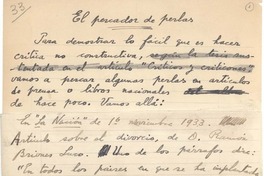 33
1
El pescador de perlas
Para demostrar lo fácil que es hacer
crítica no constructiva, según la tesis sus-
tentada en el artículo "Críticos y criticones",
vamos a pescar algunas perlas en artículos
de prensa o libros nacionales
de hace poco. Vamos allí:
En "La Nación" de 1º noviembre 1933.
Artículo sobre el divorcio, de D. Ramón
Briones Luco. Uno de los párrafos dice:
"En todos los países en que se ha implantado